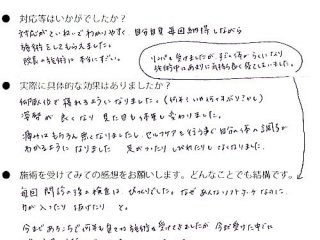 ● 対応等はいかがでしたか？
対応がていねいでわかりやすく 自分自身 毎回納得しながら
施術をしてもらえました。
院長の施術は本当にすごい。
リンパも受けましたが すごく体がらくになり
施術中はあまりに気持ち良く寝てしまいました。
● 実際に具体的な効果はありましたか？
何時間位か寝れるようになりました。
姿勢が良くなり 見た目も体重も変わりました。
痛みはもちろん無くなりましたし、セルフケアも行う事で自分の体の調子が
わかるようになりました 足がつったり しびれたりもしなくなりました。
● 施術を受けてみての感想をお願いします。どんなことでも結構です。
毎回 問診の後の検査は びっくりでした。なぜ あんなソフトタッチなのに
力が入ったり 抜けたり と。
今まであちこちで何年も色々な施術を受けてきましたが 今が受けた中で